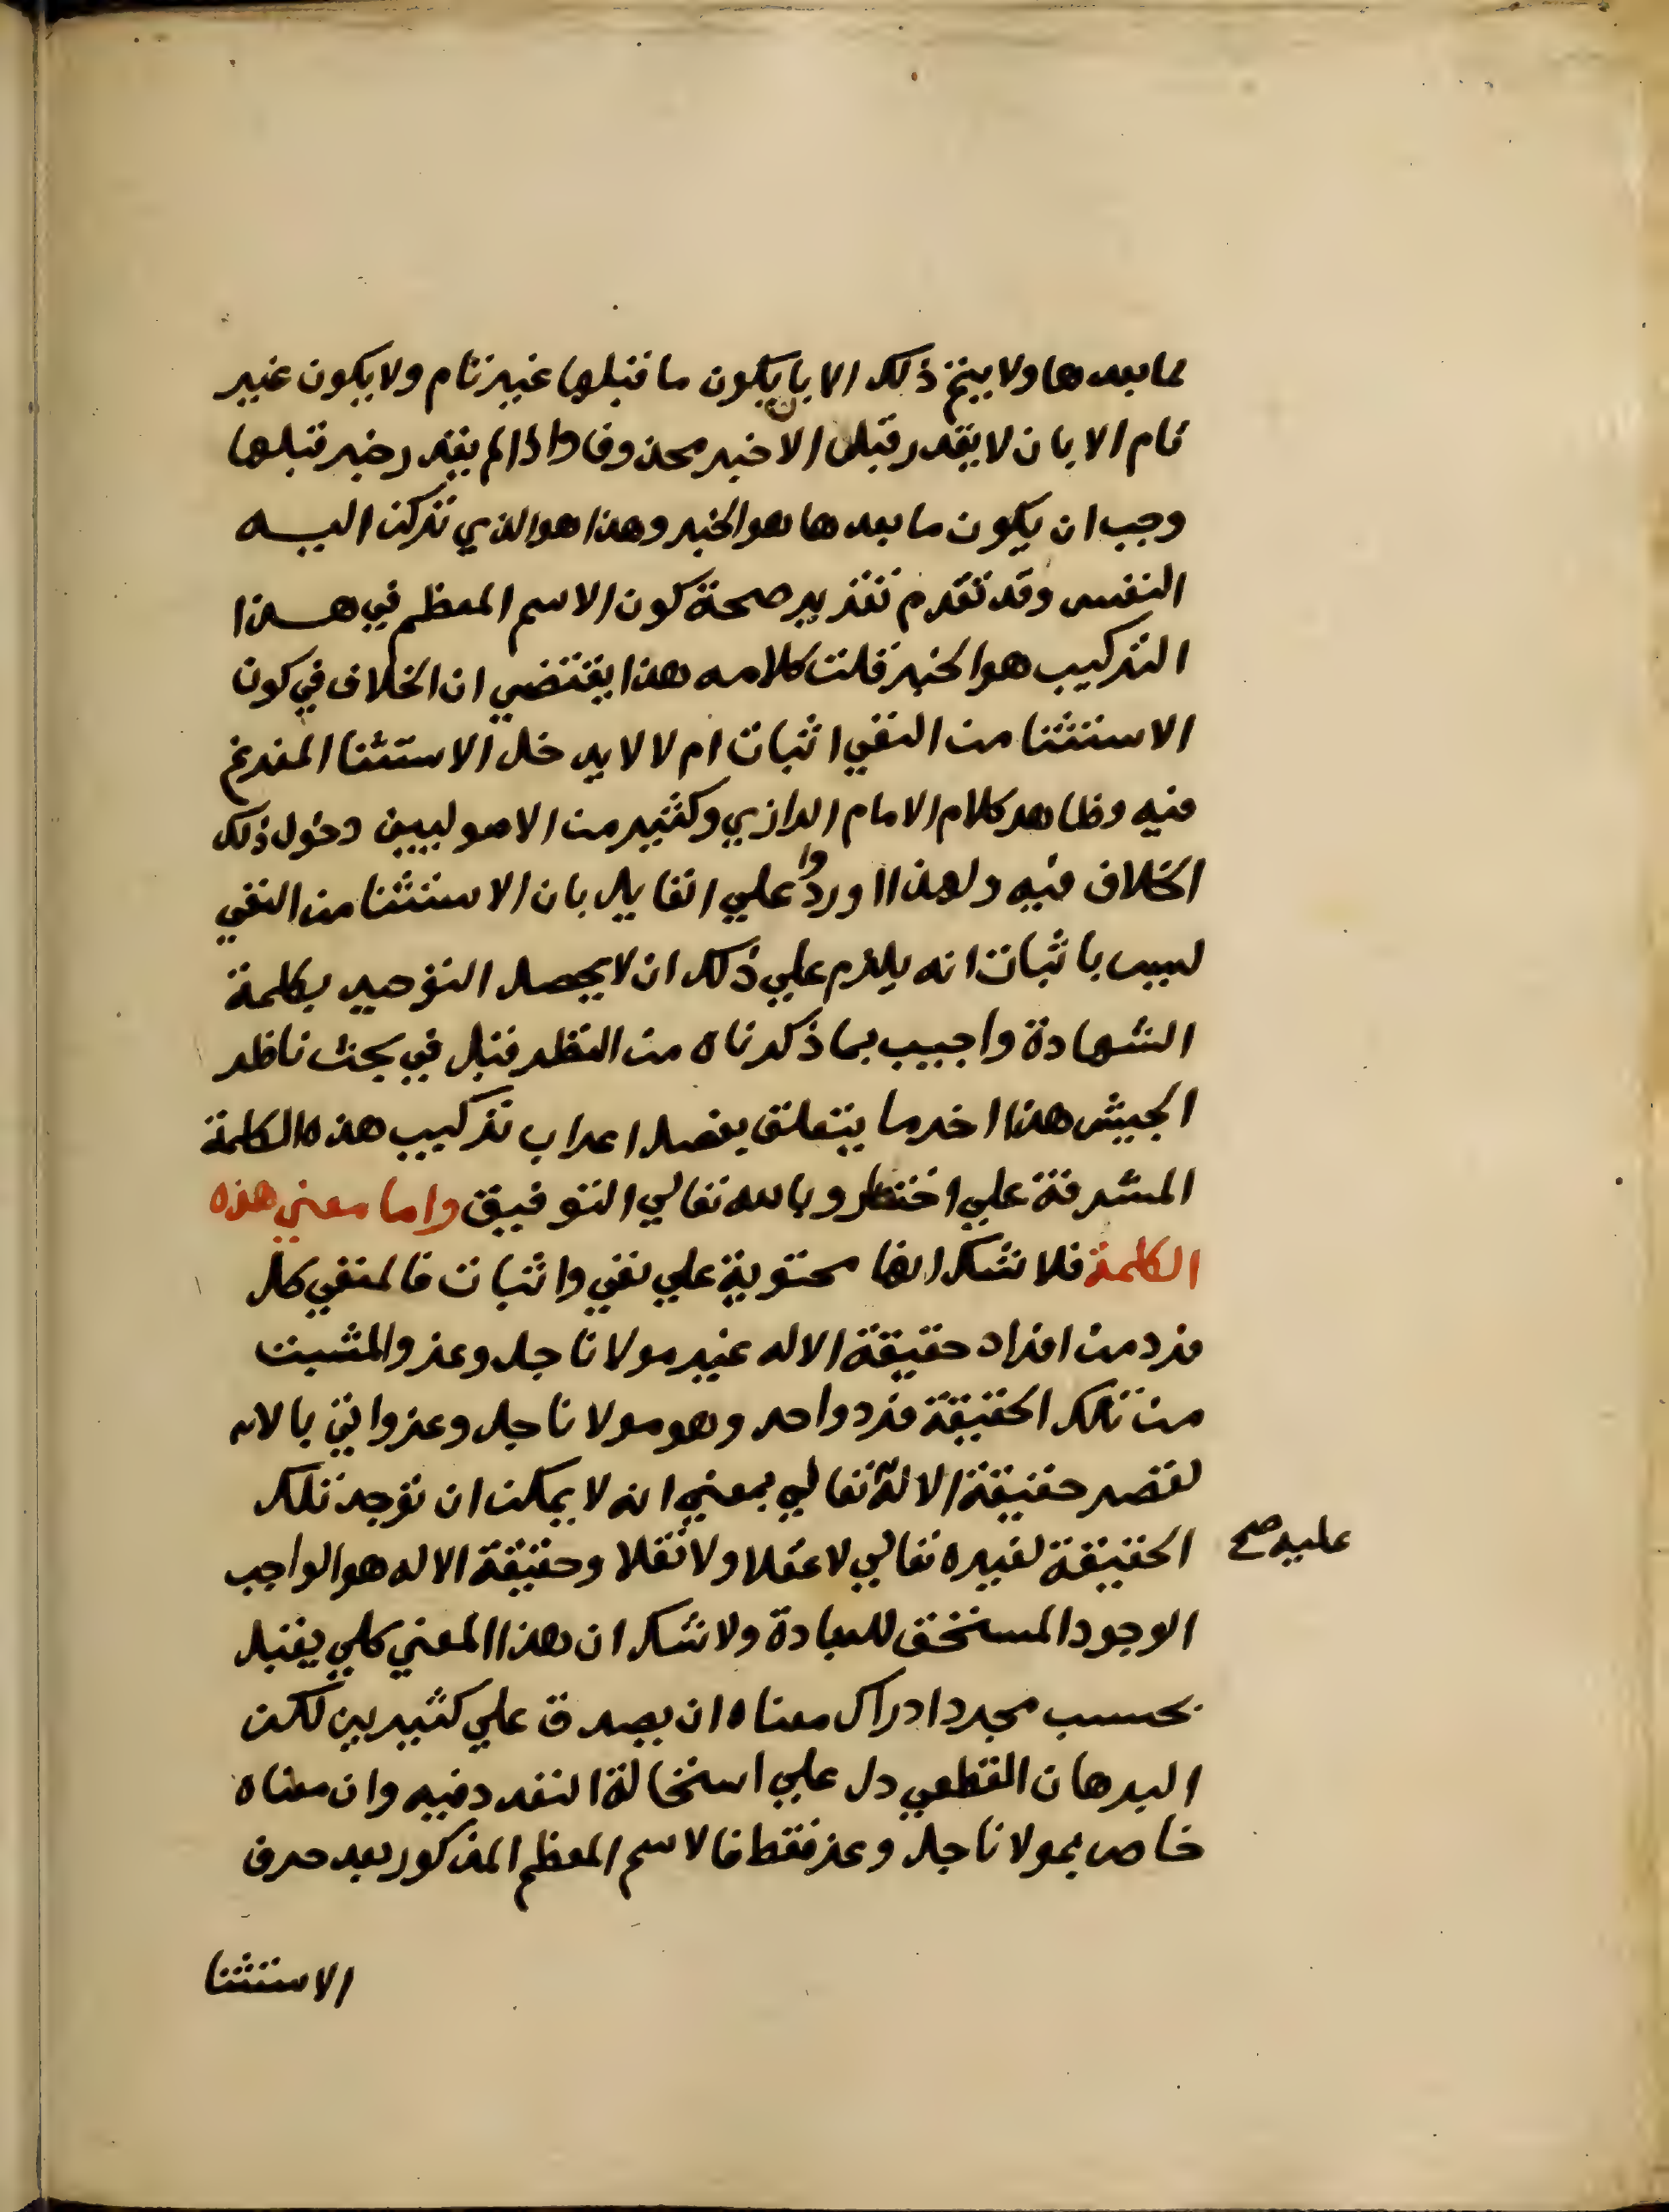 لما بعدها ولا يتم ذلك الا بان يكون ما قبلها غير تام ولا يكون غير
تام الا بان لا يقدر قبل الا خبر محذوف واذا لم يقدر خبر قبلها
وجب ان يكون ما بعدها هو الخبر وهذا هو الذي تركن اليه
النفس وقد تقدم تقرير صحة كون الاسم المعظم في هذا
التركيب هو الخبر قلت كلامه هذا يقتضي ان الخلاف في كون
الاستثنا من النفي اثبات ام لا لا يدخل الاستثنا المفرغ
فيه وظاهر كلام الامام الرازي وكثير من الاصوليين دخول ذلك
الخلاف فيه ولهذا اوردوا علي القايل بان الاستثنا من النفي
ليس باثبات انه يلزم علي ذلك ان لا يحصل التوحيد بكلمة
الشهادة واجيب بما ذكرناه من النظر قبل في بحث ناظر
الجيش هذا اخر ما يتعلق بفصل اعراب تركيب هذه الكلمة
المشرفة علي اختصار وبالله تعالي التوفيق واما معني هذه
الكلمة فلا شك انها محتوية علي نفي واثبات فالمنفي كل
فرد من افراد حقيقة الاله غير مولانا جل وعز والمثبت
من تلك الحقيقة فرد واحد وهو مولانا جل وعز واتي بالا
لقصر حقيقة الاله تعالي بمعني انه لا يمكن ان توجد تلك
عليه صح
الحقيقة لغيره تعالي لا عقلا ولا نقلا وحقيقة الاله هو الواجب
الوجود المستحق للعبادة ولا شك ان هذا المعني كلي يقبل
بحسب مجرد ادراك معناه ان يصدق علي كثيرين لكن
البرهان القطعي دل علي استحالة التعدد فيه وان معناه
خاص بمولانا جل وعز فقط فالاسم المعظم المذكور بعد حرف
الاستثنا